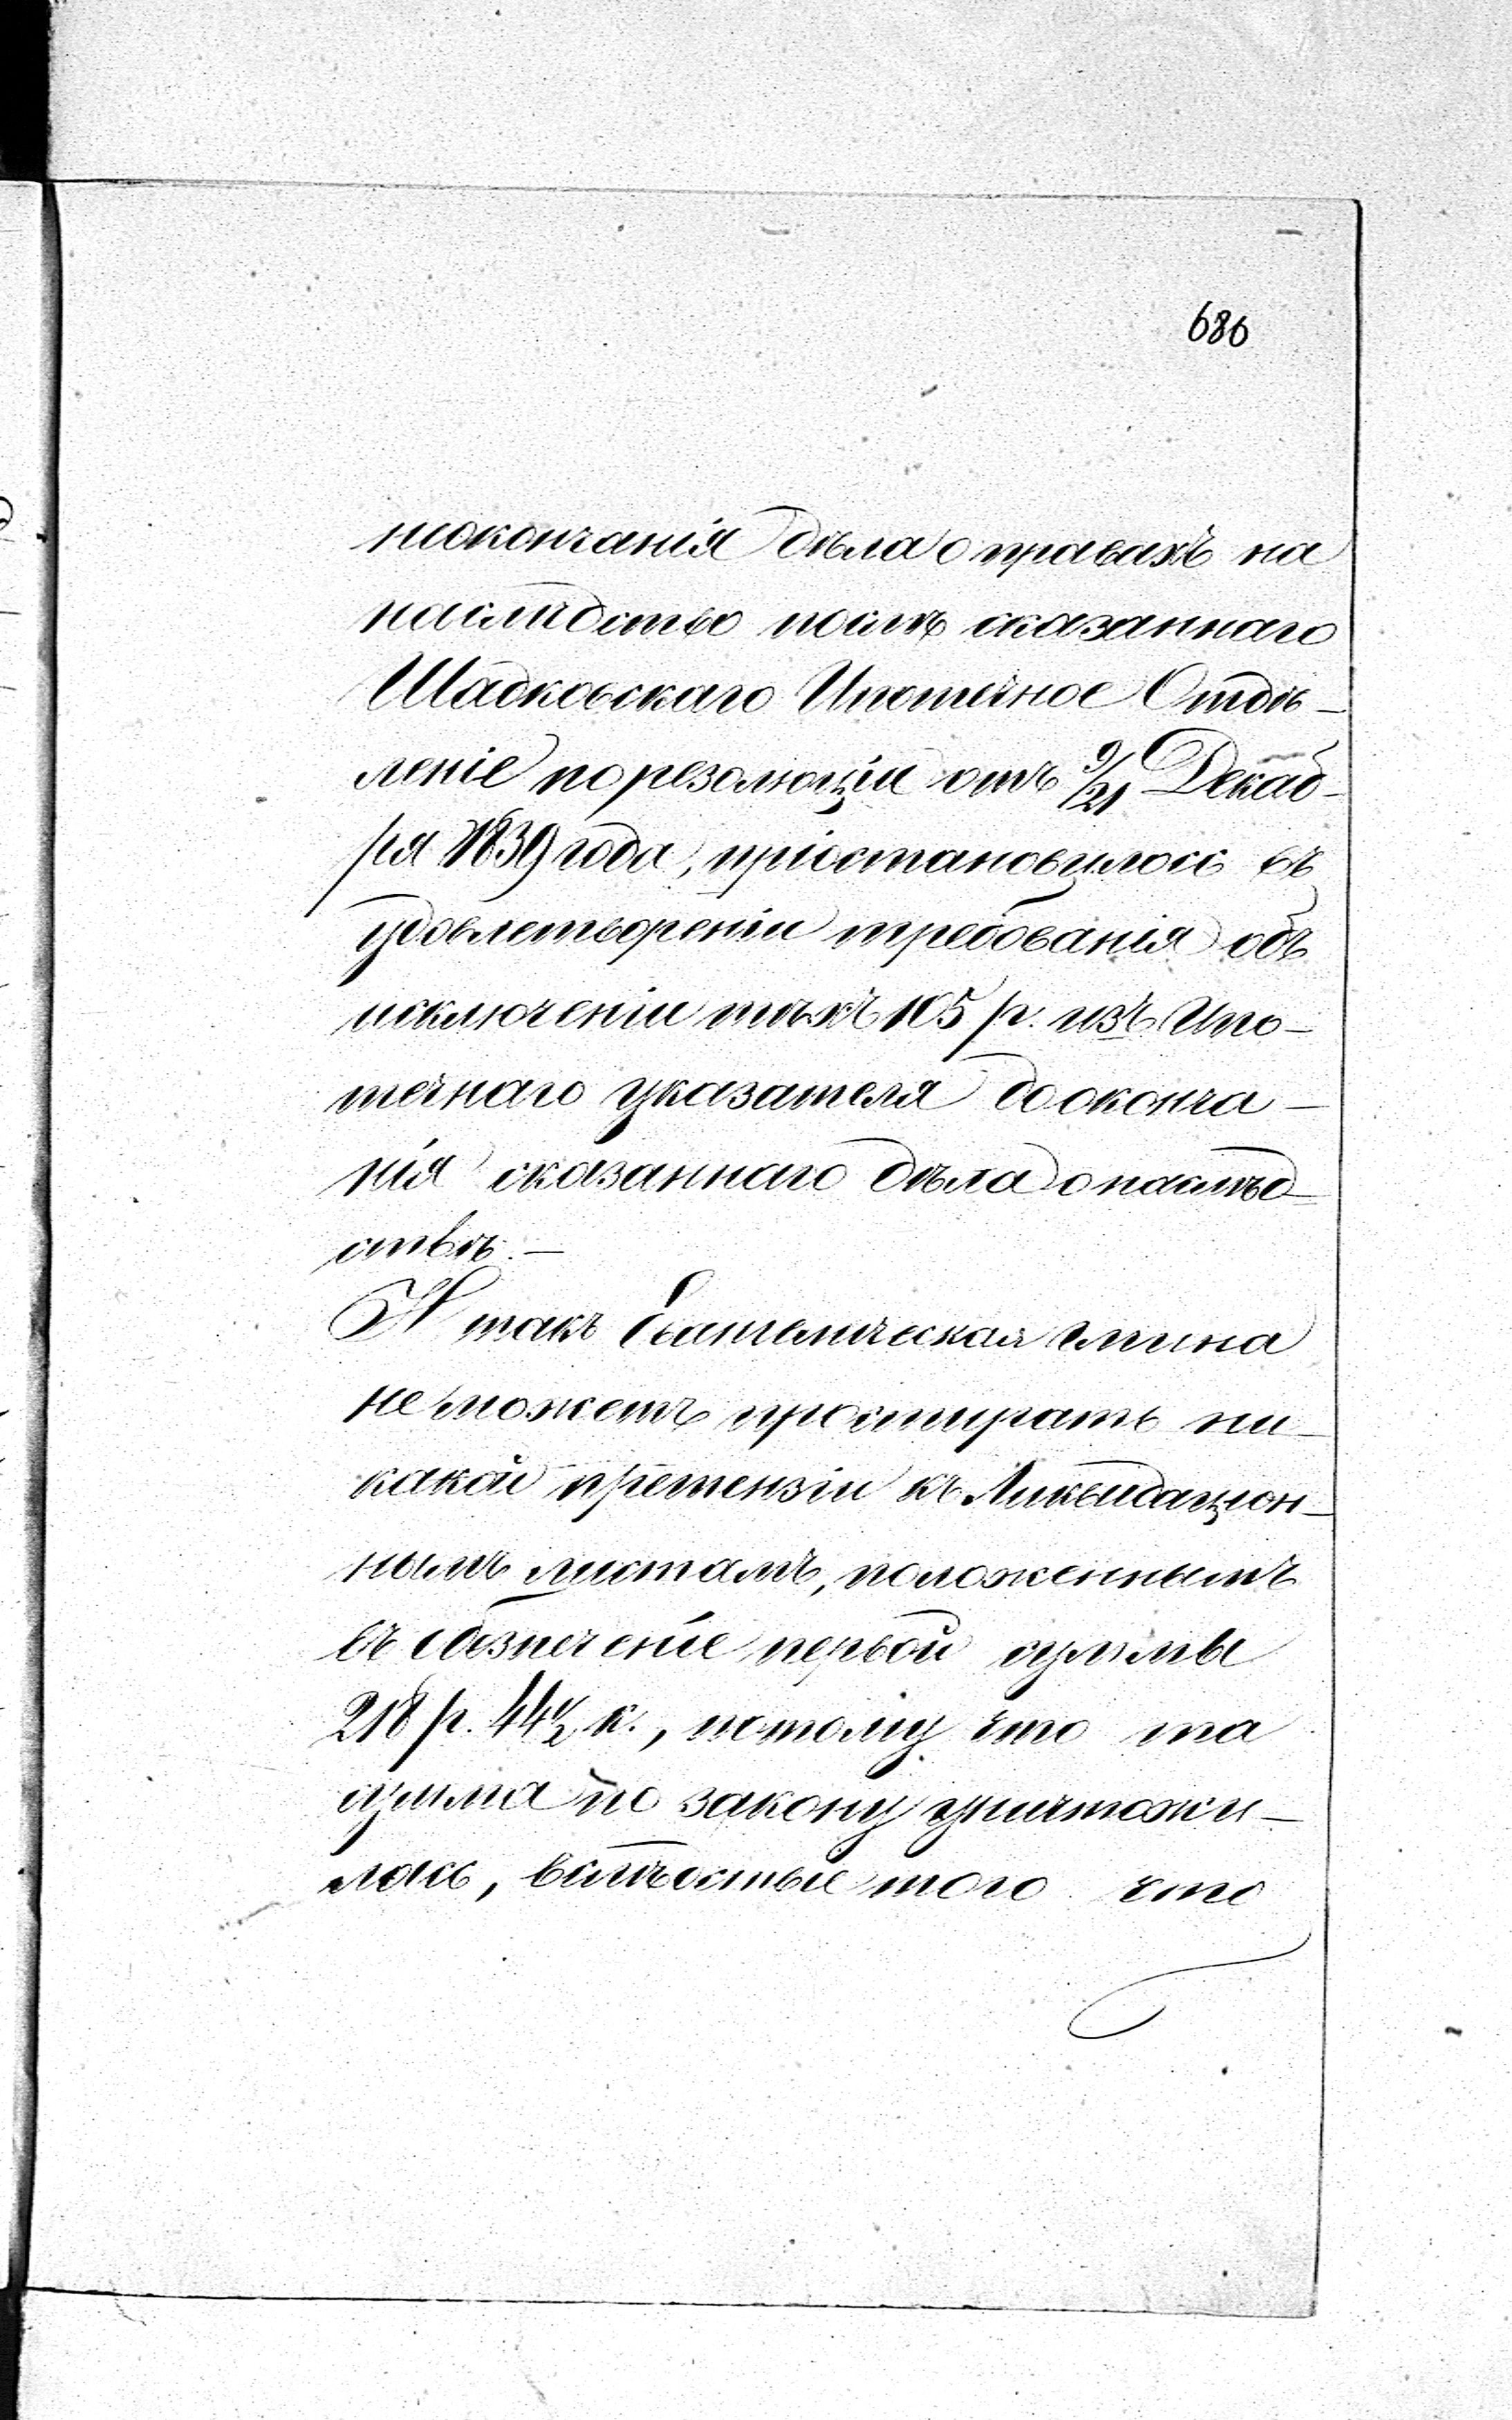 686
неокончанія дѣла о правахъ на
наслѣдство послѣ сказаннаго
Шадковскаго Ипотечное Отдѣ-
леніе по резолюціи отъ 9/21 Декаб-
ря 1839 года, пріостановилось въ
удовлетвореніи требованія объ
исключеніи тѣхъ 105 р. изъ Ипо-
течнаго указателя до оконча-
нія сказаннаго дѣла о наслѣд-
ствѣ.—
И такъ Евангелическая гмина
не можетъ простирать ни-
какой претензіи къ Ликвидацион-
нымъ листамъ, положеннымъ
въ обезпеченіе первой суммы
218 р. 44½ к., потому что та
сумма по закону уничтожи-
лась, вслѣдствіе того что